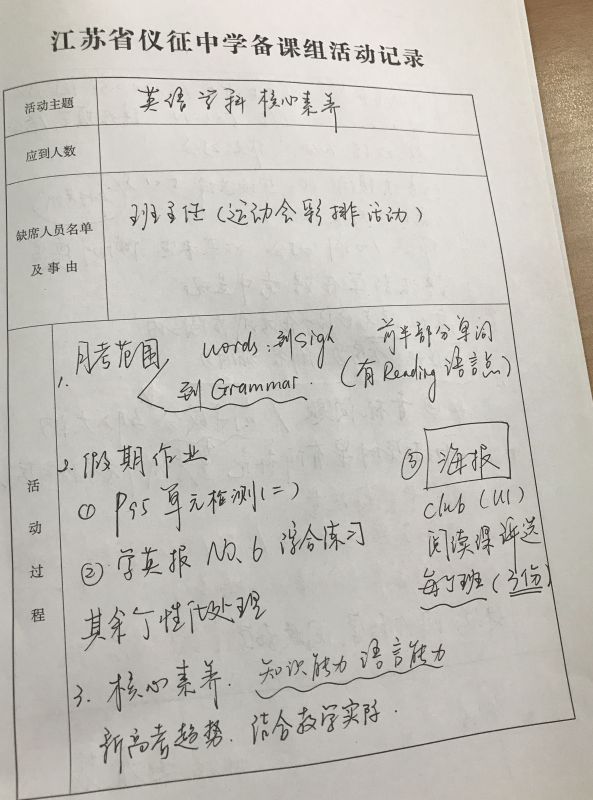 江苏省仪征中学备课组活动记录
活动主题 英语学科核心素养
应到人数
缺席人员名单及事由 班主任（运动会彩排活动）
活动过程
1. 月考范围 words:到sigh 前半部分单词
到Grammar. （有Reading语言点）
2. 假期作业
① P95 单元检测（二）
② 学英报 NO.6 综合练习
其余个性化处理
③ 海报
club (U1)
阅读课评选
每个班（3份）
3. 核心素养. 知识能力 语言能力
新高考趋势. 结合教学实际.